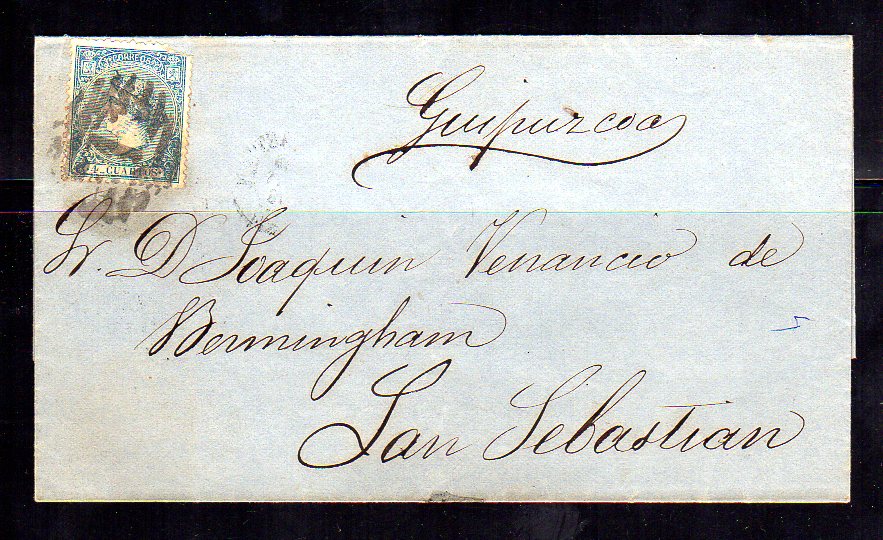 CORREOS
4 CUARTOS
Guipuzcoa
Sr. D Joaquin Venancio de
Bermingham
San Sebastian